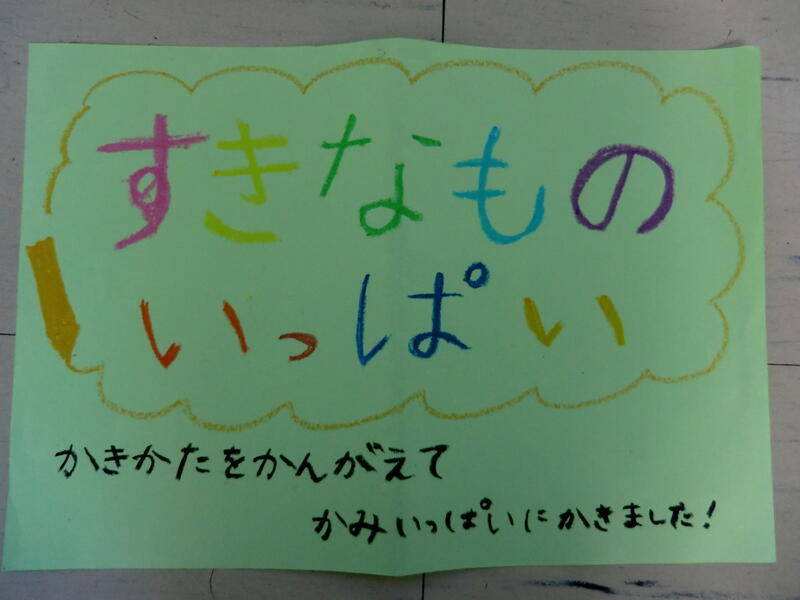 すきなもの
いっぱい
かきかたをかんがえて
かみいっぱいにかきました!